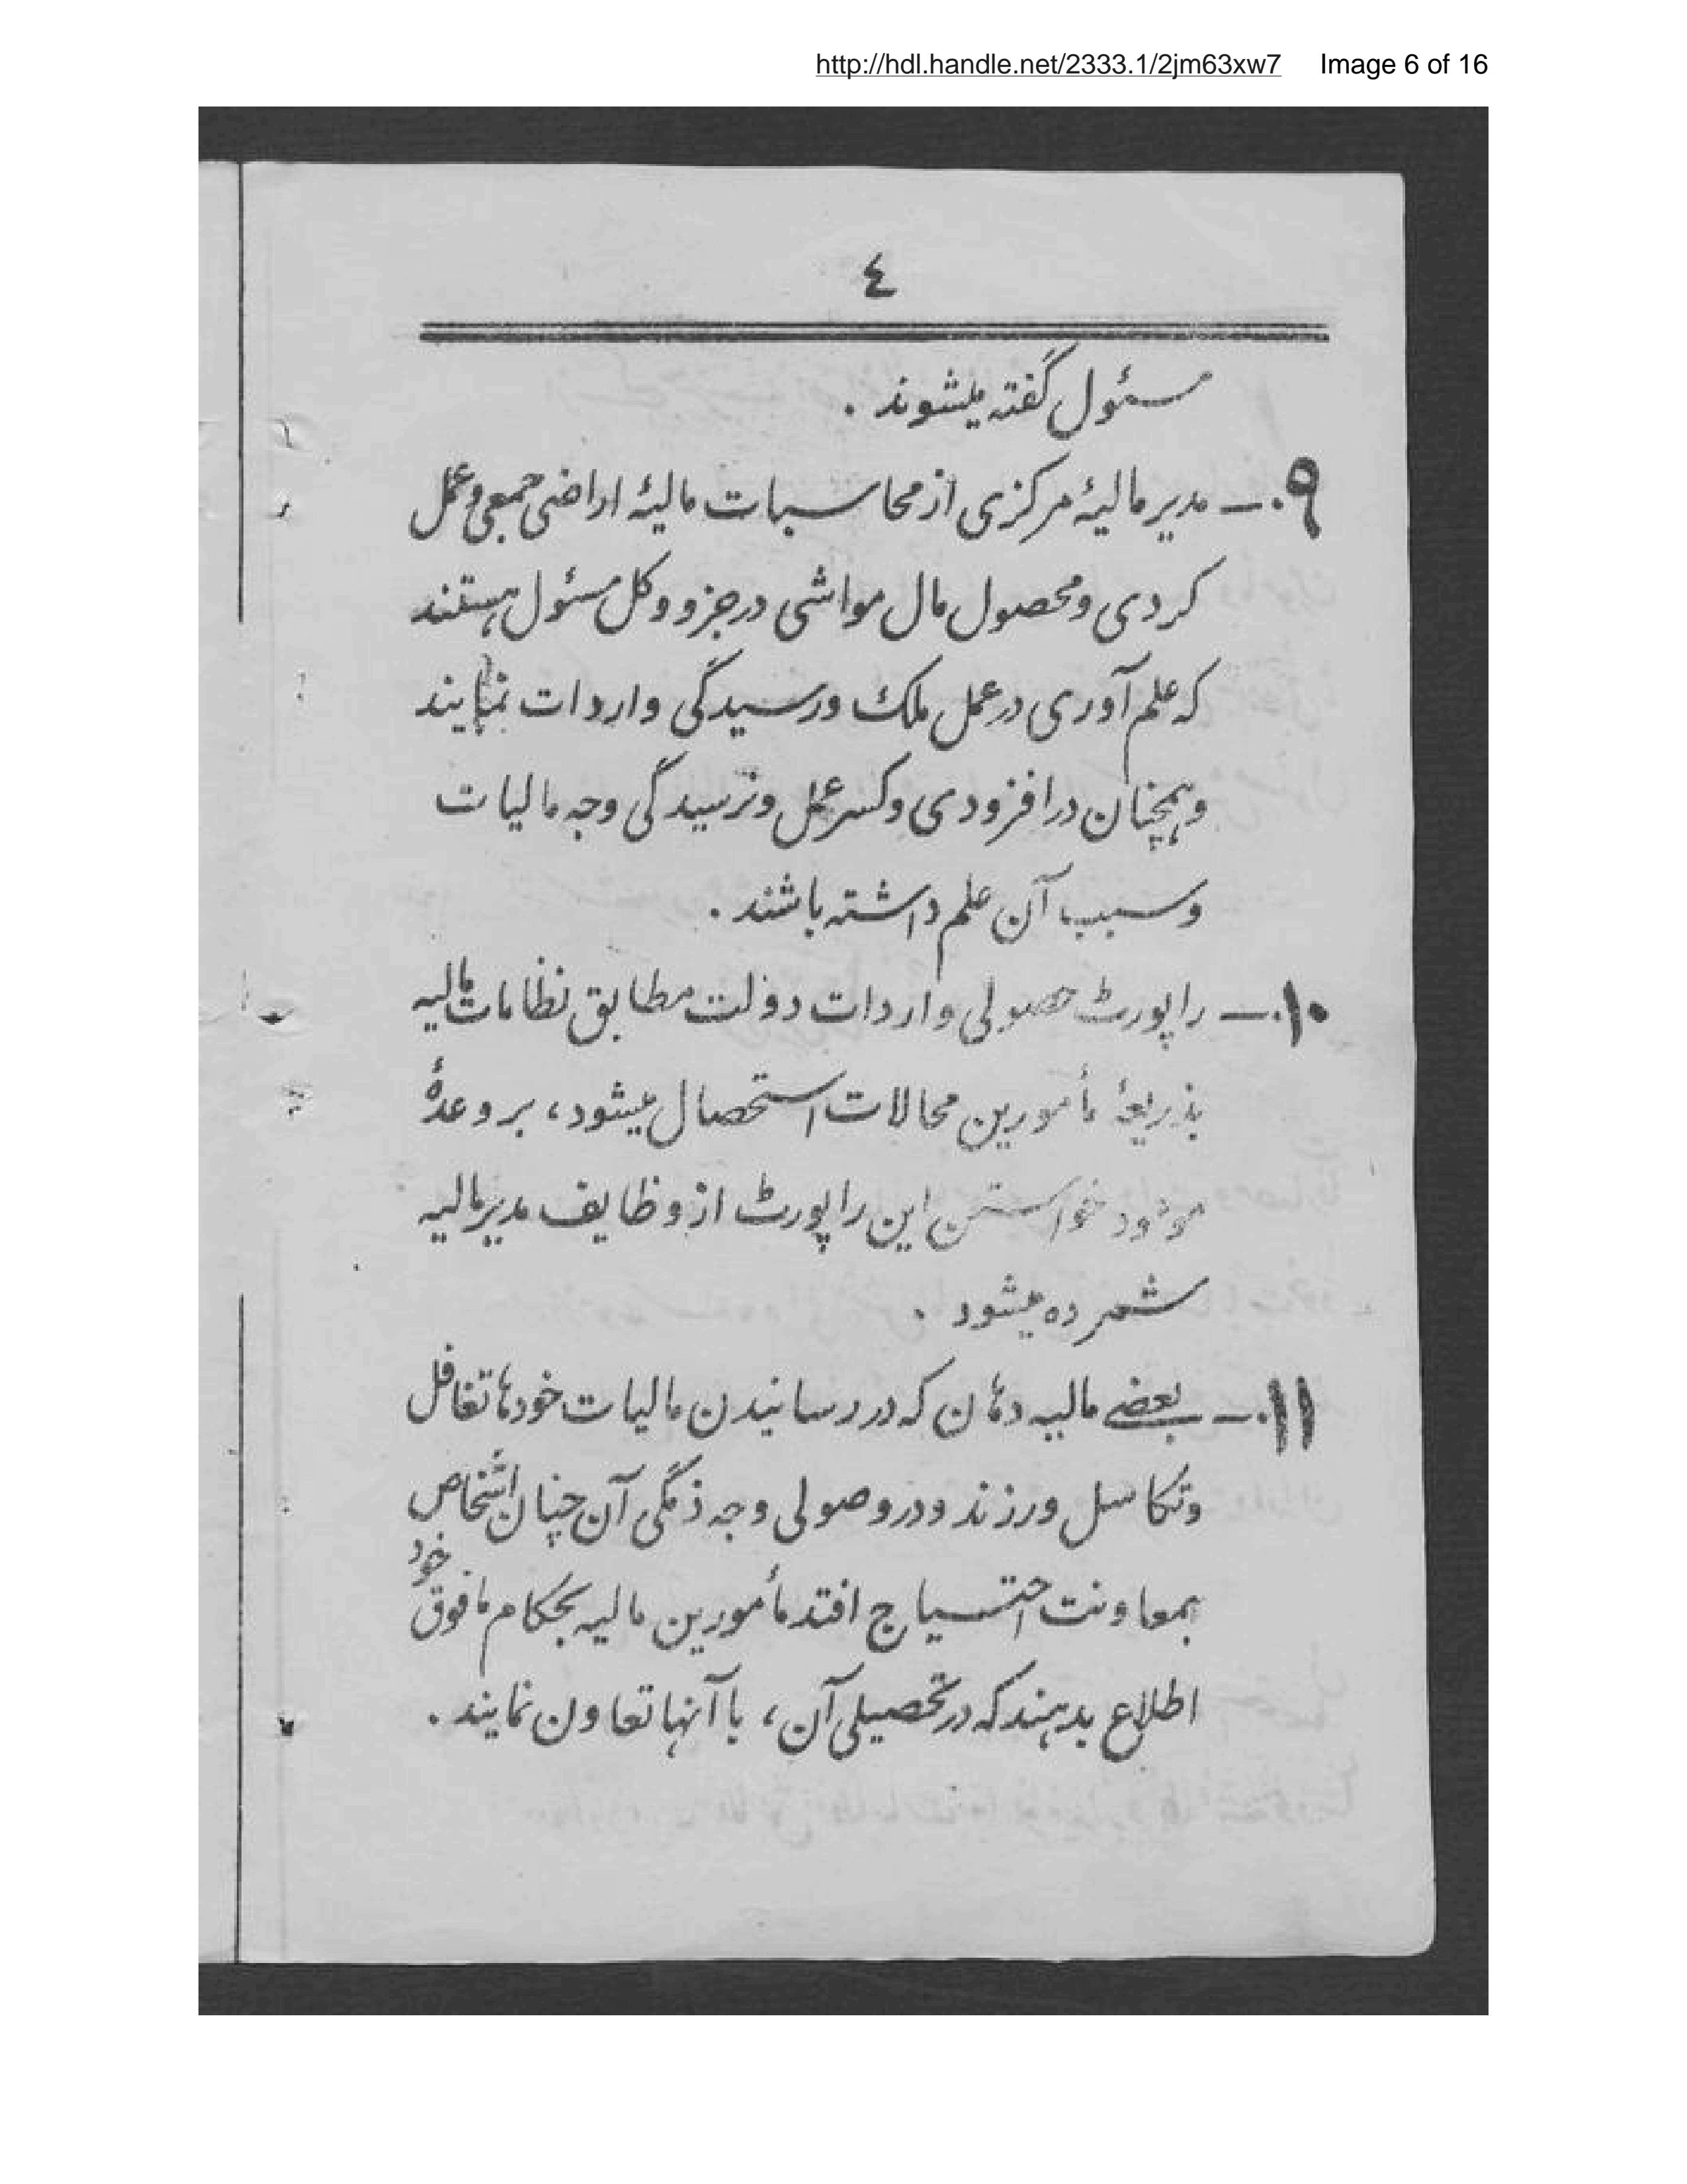 http://hdl.handle.net/2333.1/2jm63xw7 Image 6 of 16
٤
مسئول گفته میشوند .
٩.— مدیر مالیهٔ مرکزی از محاسبات مالیهٔ اراضی جمعی و عمل
کردی و محصول مال مواشی در جزو و کل مسئول هستند
که علم آوری در عمل ملک و رسیدگی واردات نمایند
و همچنان در افزودی و کسر عمل و نرسیدگی وجه مالیات
و سبب آن علم داشته باشند .
١٠.— راپورٹ حصولی واردات دولت مطابق نظامات مالیه
بذریعهٔ مأمورین محالات استحصال میشود، بر وعدهٔ
موعود خواستن این راپورٹ از وظایف مدیر مالیه
شمرده میشود .
١١.— بعضے مالیه دهان که در رسانیدن مالیات خودها تغافل
و تکاسل ورزند و در وصولی وجه ذمگی آن چنان اشخاص
بمعاونت احتیاج افتد مأمورین مالیه بحکام مافوق خود
اطلاع بدهند که در تحصیلی آن، با آنها تعاون نمایند .